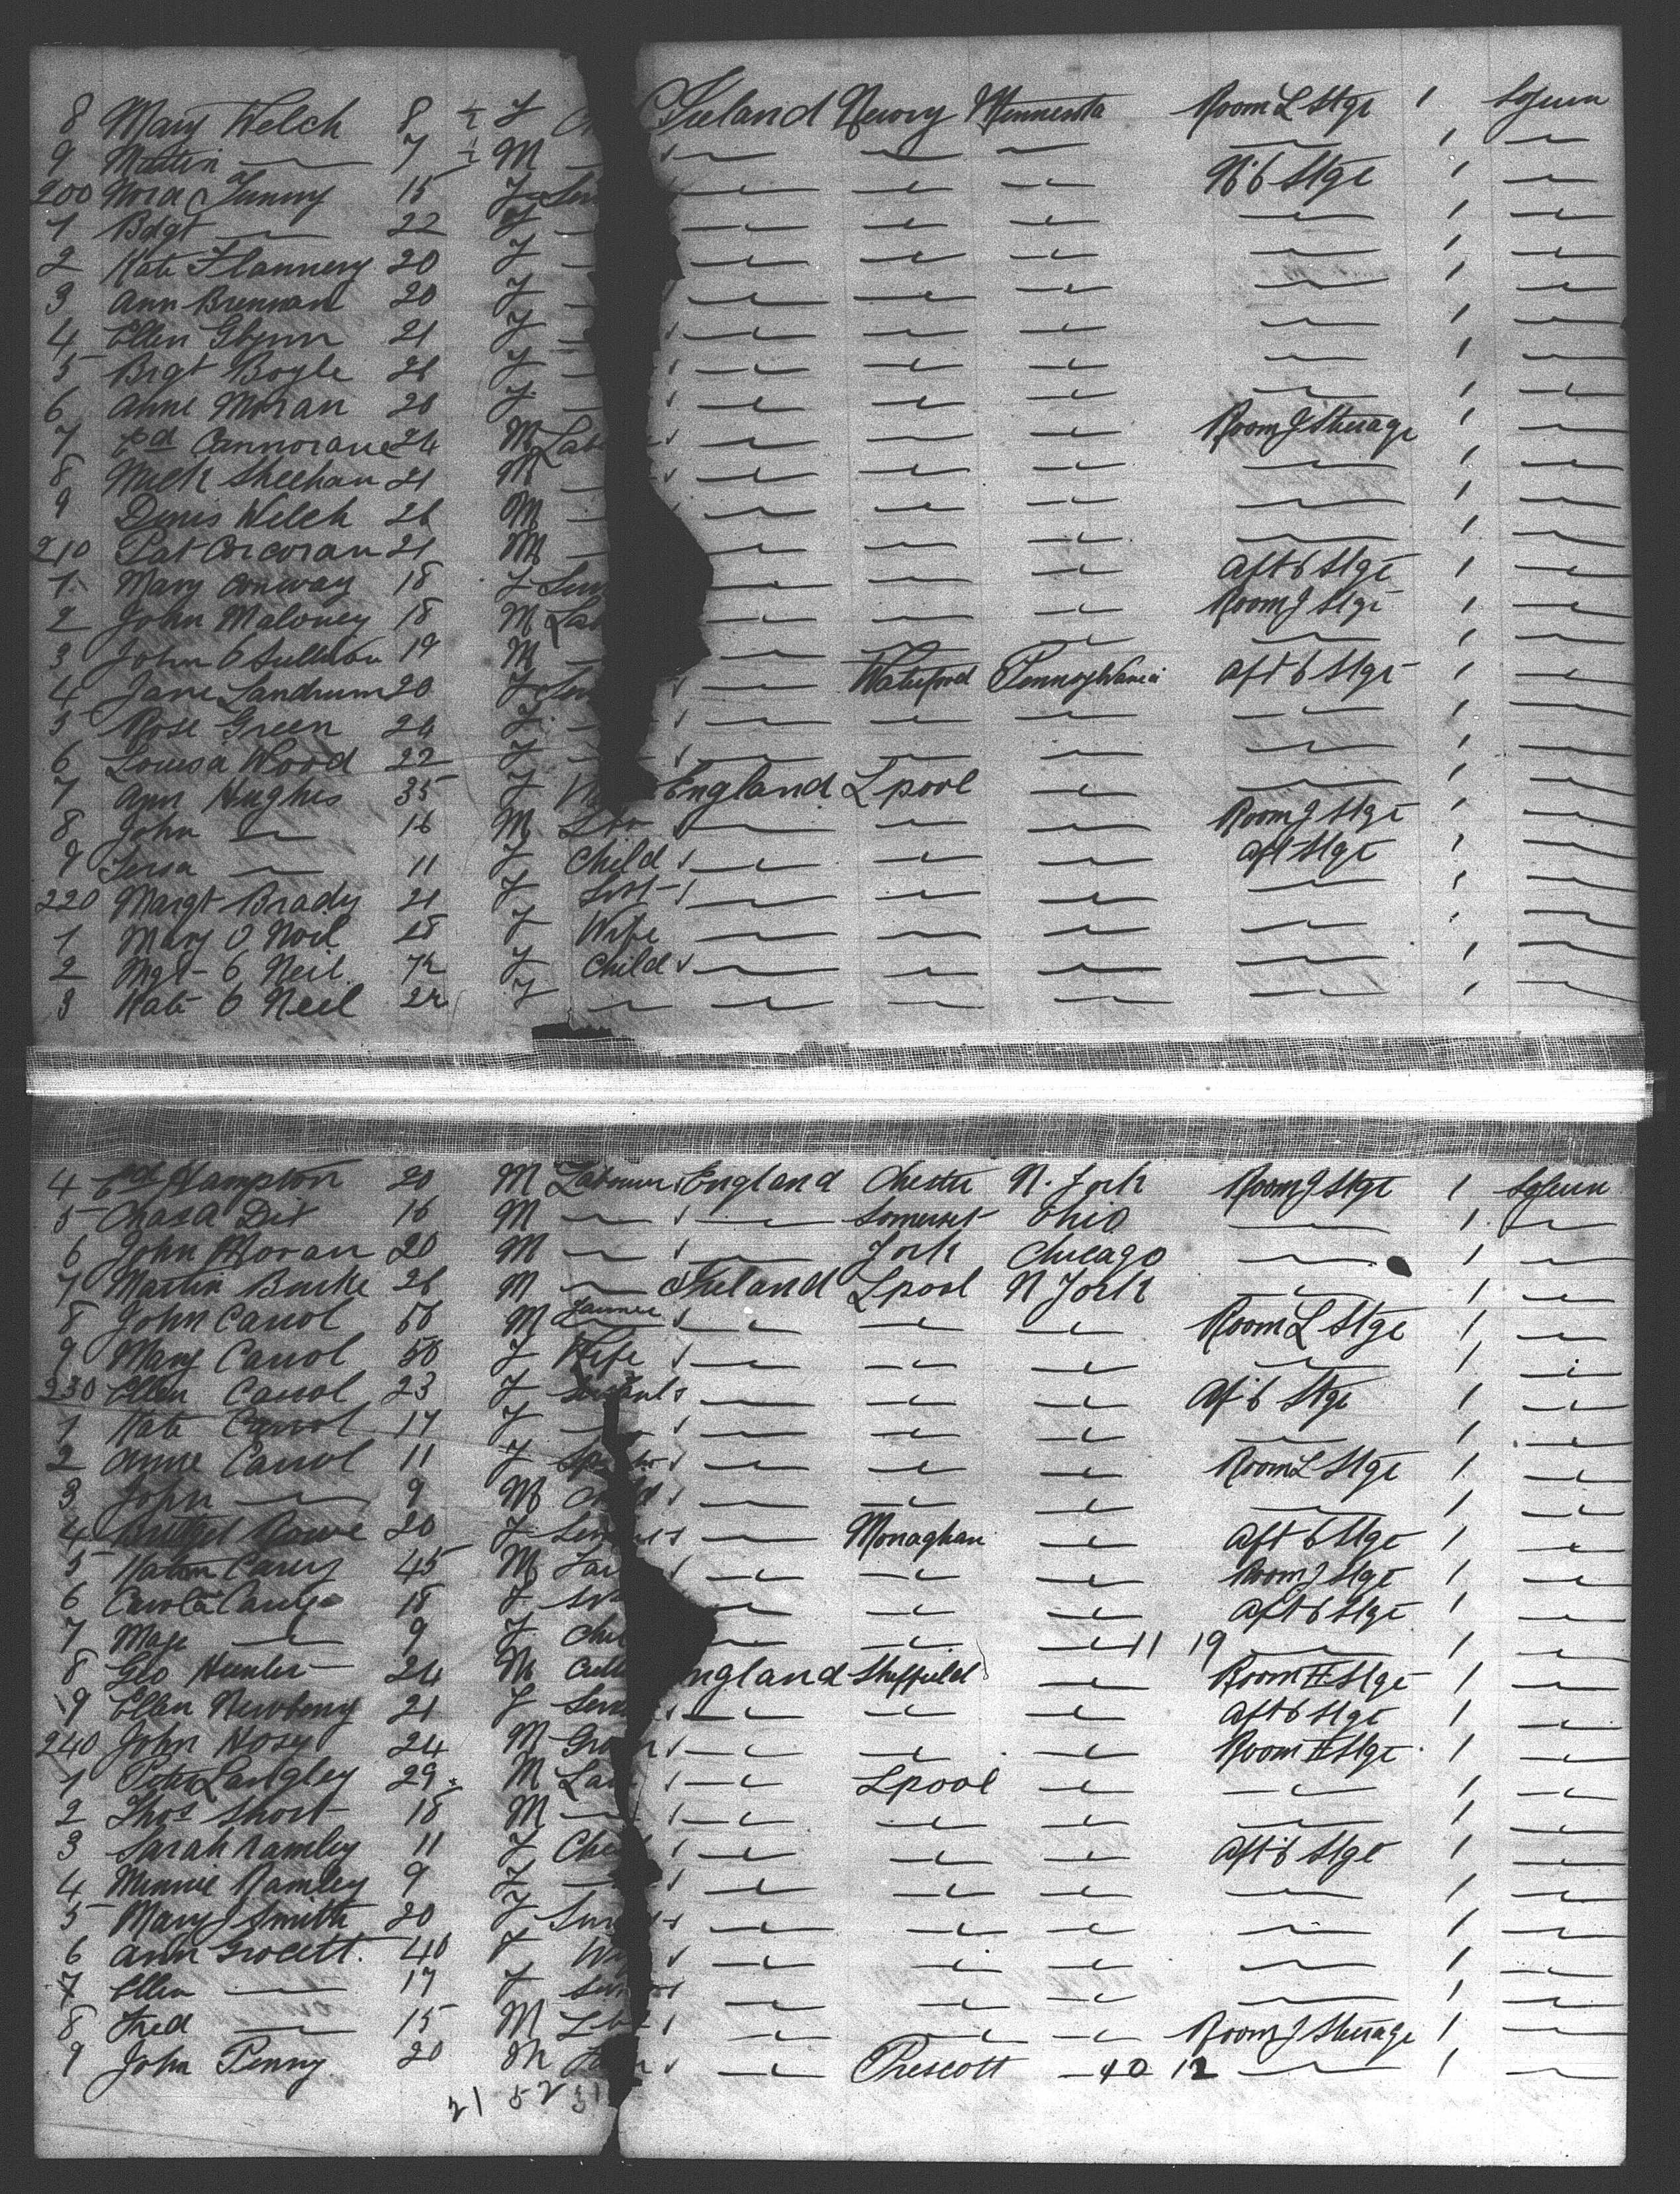 8 Mary Welch 8 F Ch Ireland Newry Minnesota Room L Stge 1 Sojourn
9 Martin — 7 M — — — — — 1 —
200 Nora Tunny 15 F Ser — — — Aft 6 Stge 1 —
1 Bdgt — 22 F — — — — — 1 —
2 Kate Flannery 20 F — — — — — 1 —
3 Ann Brennan 20 F — — — — — 1 —
4 Ellen Glynn 21 F — — — — — 1 —
5 Brgt Boyle 26 F — — — — — 1 —
6 Anne Moran 20 F — — — — — 1 —
7 Ed 24 M Lab — — — Room J Steerage 1 —
8 Mich Sheehan 21 M — — — — — 1 —
9 Denis Welch 26 M — — — — — 1 —
210 Pat Corcoran 21 M — — — — — 1 —
1 Mary Conway 18 F Serv — — — Aft 6 Stge 1 —
2 John Maloney 18 M Lab — — — Room J Stge 1 —
3 John O Sullivan 19 M — — — — — 1 —
4 Jane Landrum 20 F Ser — Waterford Pennsylvania Aft 6 Stge 1 —
5 Rose Green 24 F — — — — — 1 —
6 Louisa Wood 22 F — — — — — 1 —
7 Ann Hughes 35 F England Lpool — — 1 —
8 John — 16 M Lbr — — — Room J Stge 1 —
9 — 11 F Child — — — Aft Stge 1 —
220 Margt Brady 21 F — — — — 1 —
1 Mary O Neil 28 F Wife — — — — 1 —
2 Mgt O Neil F Child — — — — 1 —
3 Kate O Neil F — — — — — 1 —
4 Ed Hampton 20 M Labourer England Chester N. York Room J Stge 1 Sojourn
5 Chas A Dix 16 M — — Somerset Ohio — 1 —
6 John Moran 20 M — — York Chicago — 1 —
7 Martin Burke 26 M — Ireland Lpool N York — 1 —
8 John Carrol 56 M Farmer — — — Room L Stge 1 —
9 Mary Carrol 50 F Wife — — — — 1 —
230 Ellen Carrol 23 F Servant — — — Aft 6 Stge 1 —
1 Kate Carrol 17 F — — — — — 1 —
2 Anne Carrol 11 F Sp — — — Room L Stge 1 —
3 John — 9 M Ch d — — — — 1 —
4 Bridget Rowe 20 F Ser — Monaghan — Aft 6 Stge 1 —
5 Carey 45 M Far — — — Room J Stge 1 —
6 Carey 18 F — — — Aft 6 Stge 1 —
7 Mage — 9 F Chil — — — 11 19 — 1 —
8 Geo Hunter 24 M Cutl ngland Sheffield — Room H Stge 1 —
9 Ellen Newbery 21 F Serv — — — Aft 6 Stge 1 —
240 John Hosy 24 M Gro — — — Room H Stge 1 —
1 Peter Langley 29 M Lab — Lpool — — 1 —
2 Thos Short 18 M — — — — — 1 —
3 Sarah Ramley 11 F Chi — — — Aft 6 Stge 1 —
4 Minnie Ramley 9 F — — — — — 1 —
5 Mary J Smith 20 F Ser — — — — 1 —
6 Ann Grocett 40 F Wi — — — — 1 —
7 Ellen — 17 F Ser — — — — 1 —
8 Fred — 15 M Lbr — — — Room J Steerage 1 —
9 John Penny 20 M — Prescott — 40 12 — 1 —
21 52 31